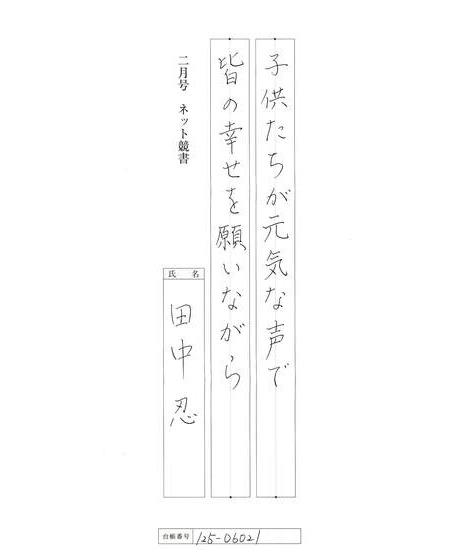 子供たちが元気な声で
皆の幸せを願いながら
二月号 ネット競書
氏名
田中忍
台帳番号 125-06021